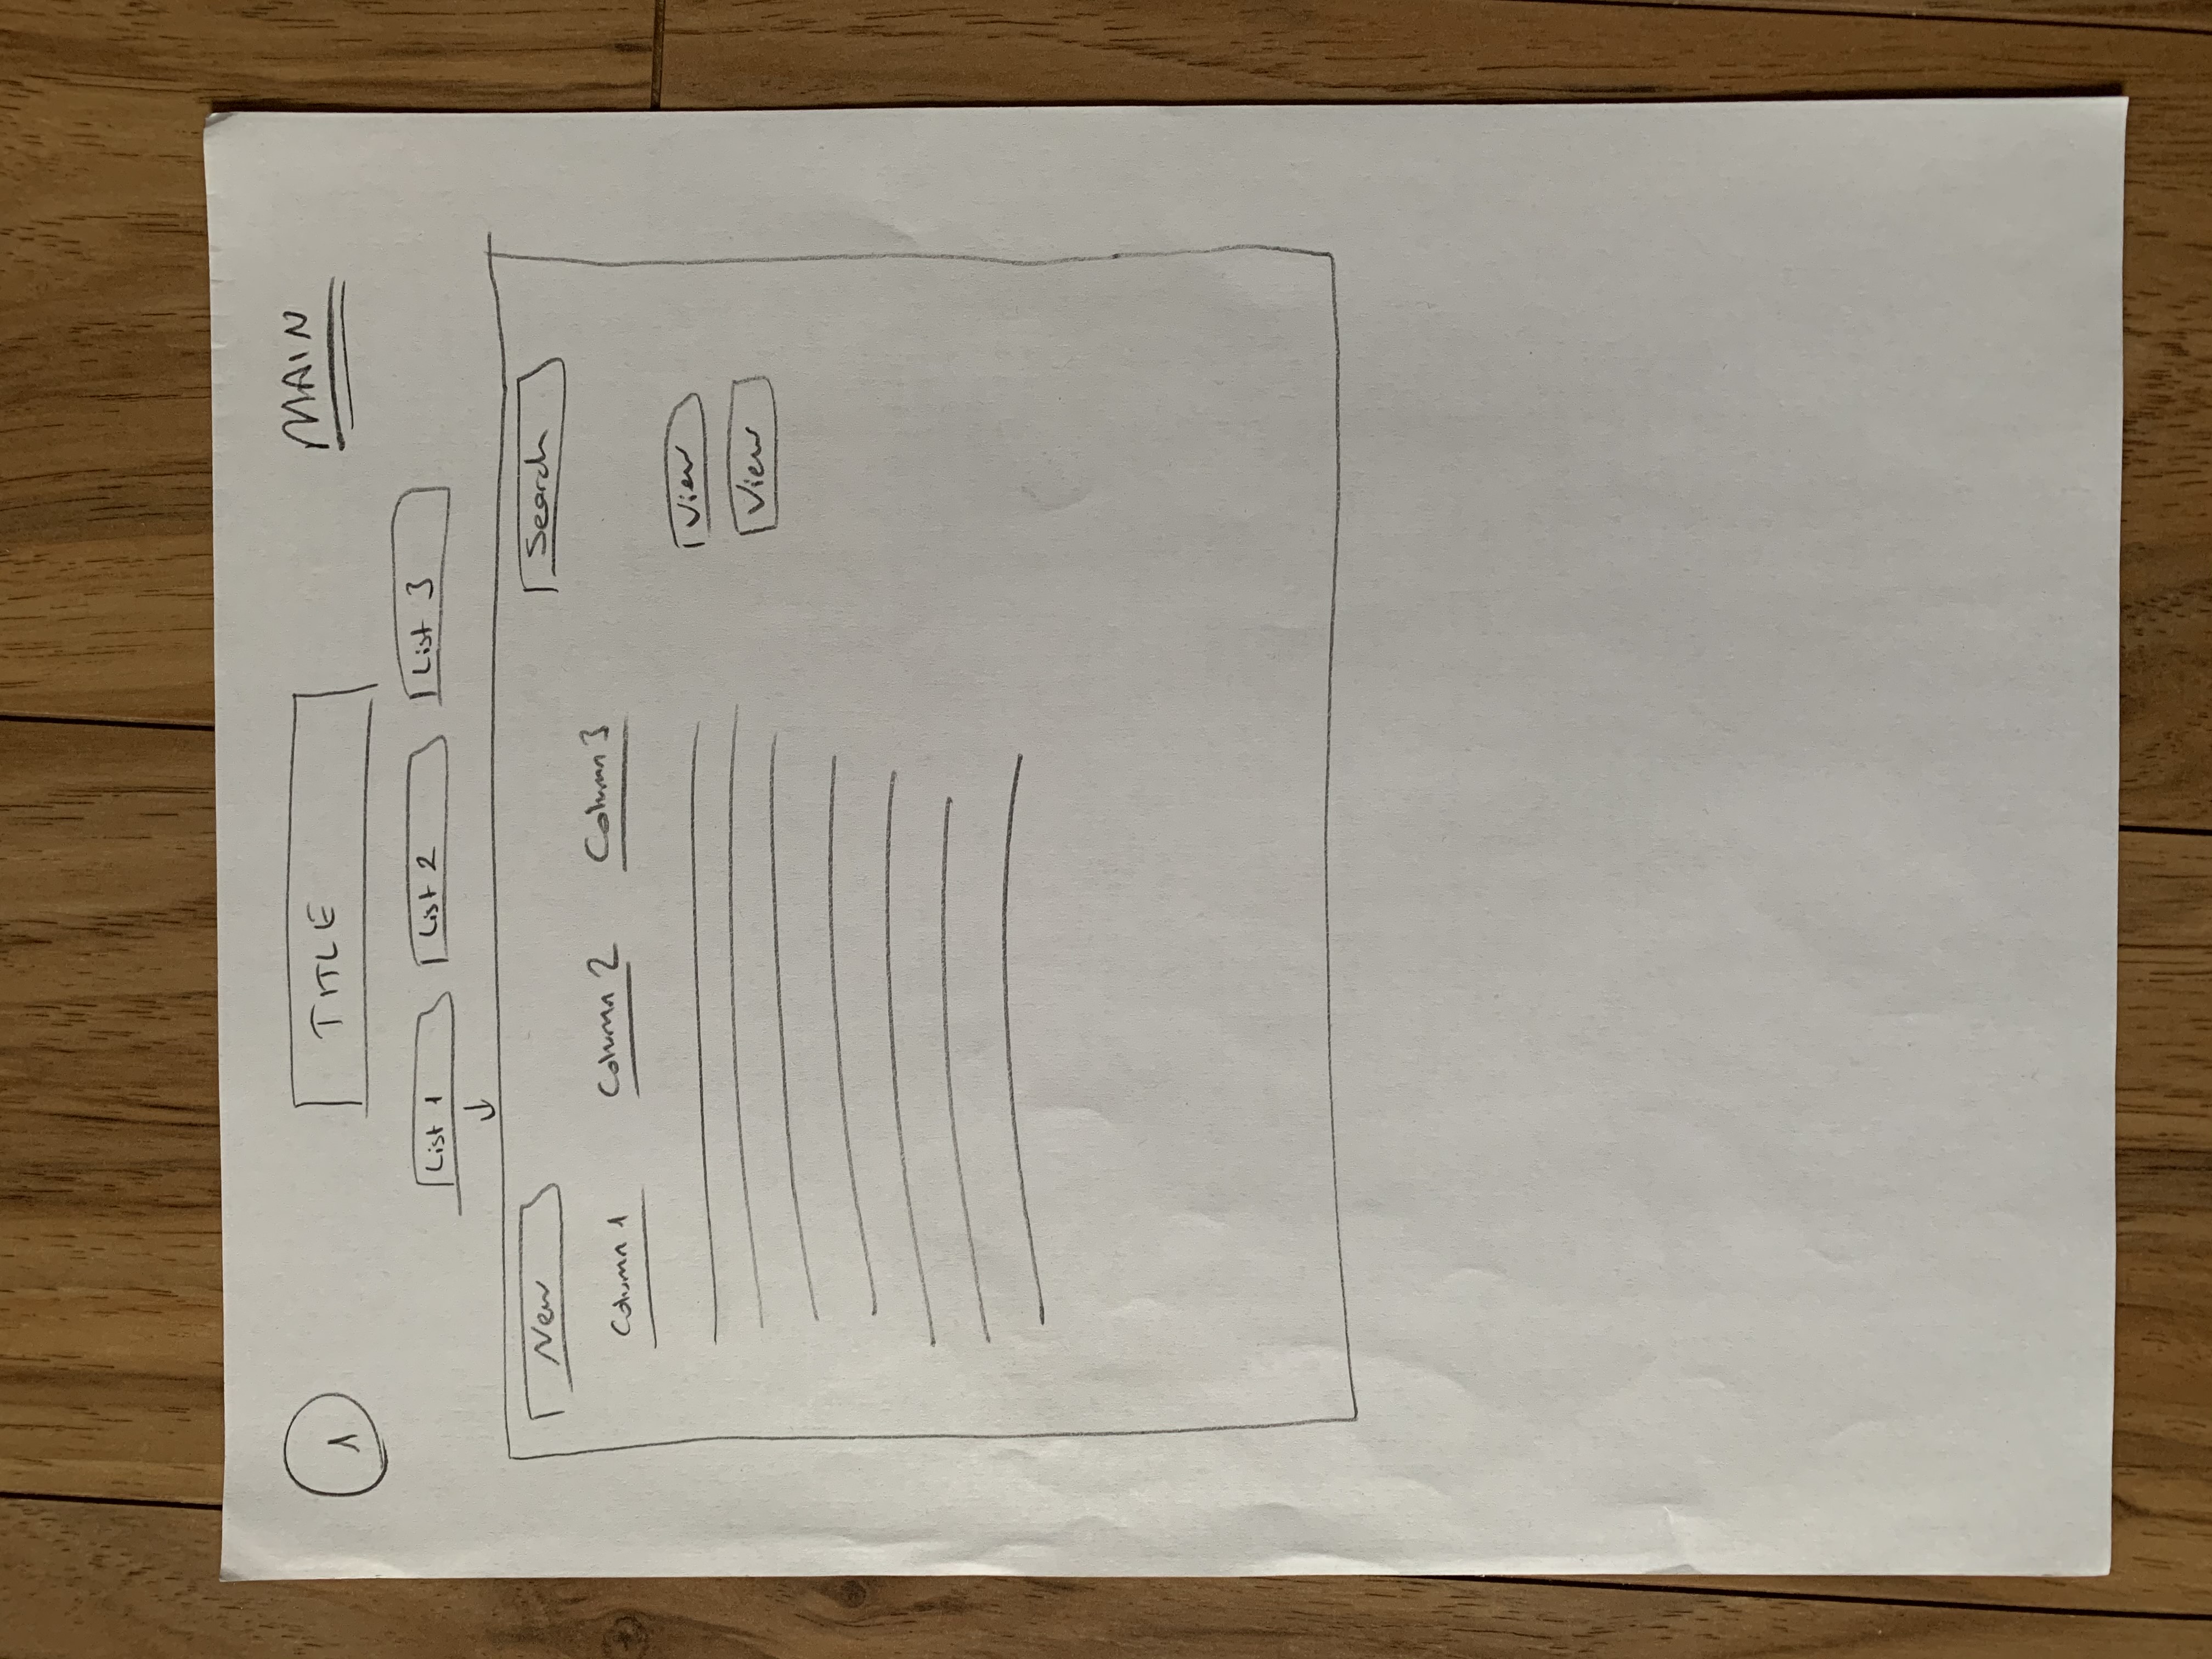 1
TITLE
MAIN
List 1
List 2
List 3
New
Search
Column 1
Column 2
Column 3
View
View